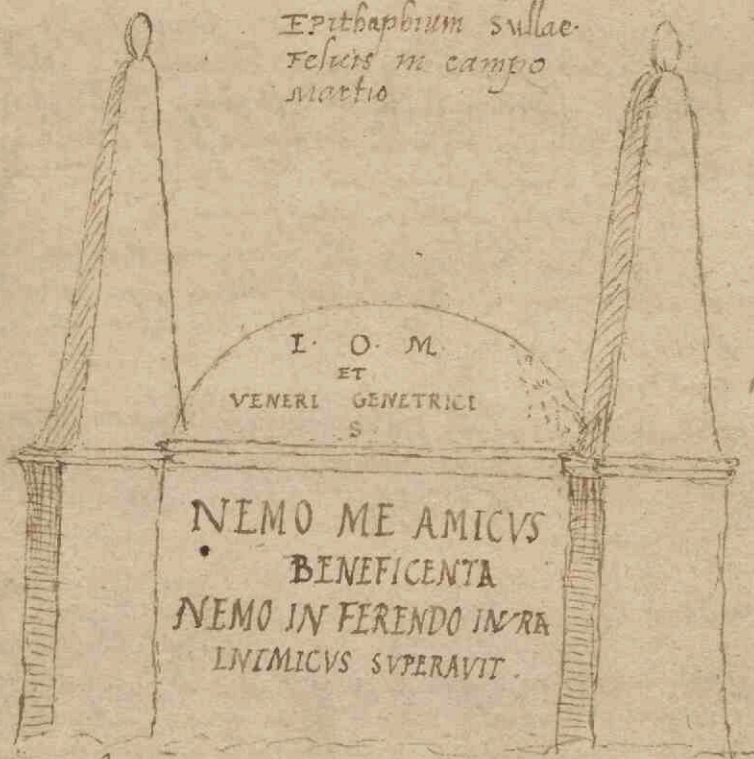 Epithaphium Sullae.
Felicis in campo
Martio
I. O. M.
ET
VENERI GENETRICI
S.
NEMO ME AMICVS
BENEFICENTA
NEMO IN FERENDO INVRA
INIMICVS SVPERAVIT.